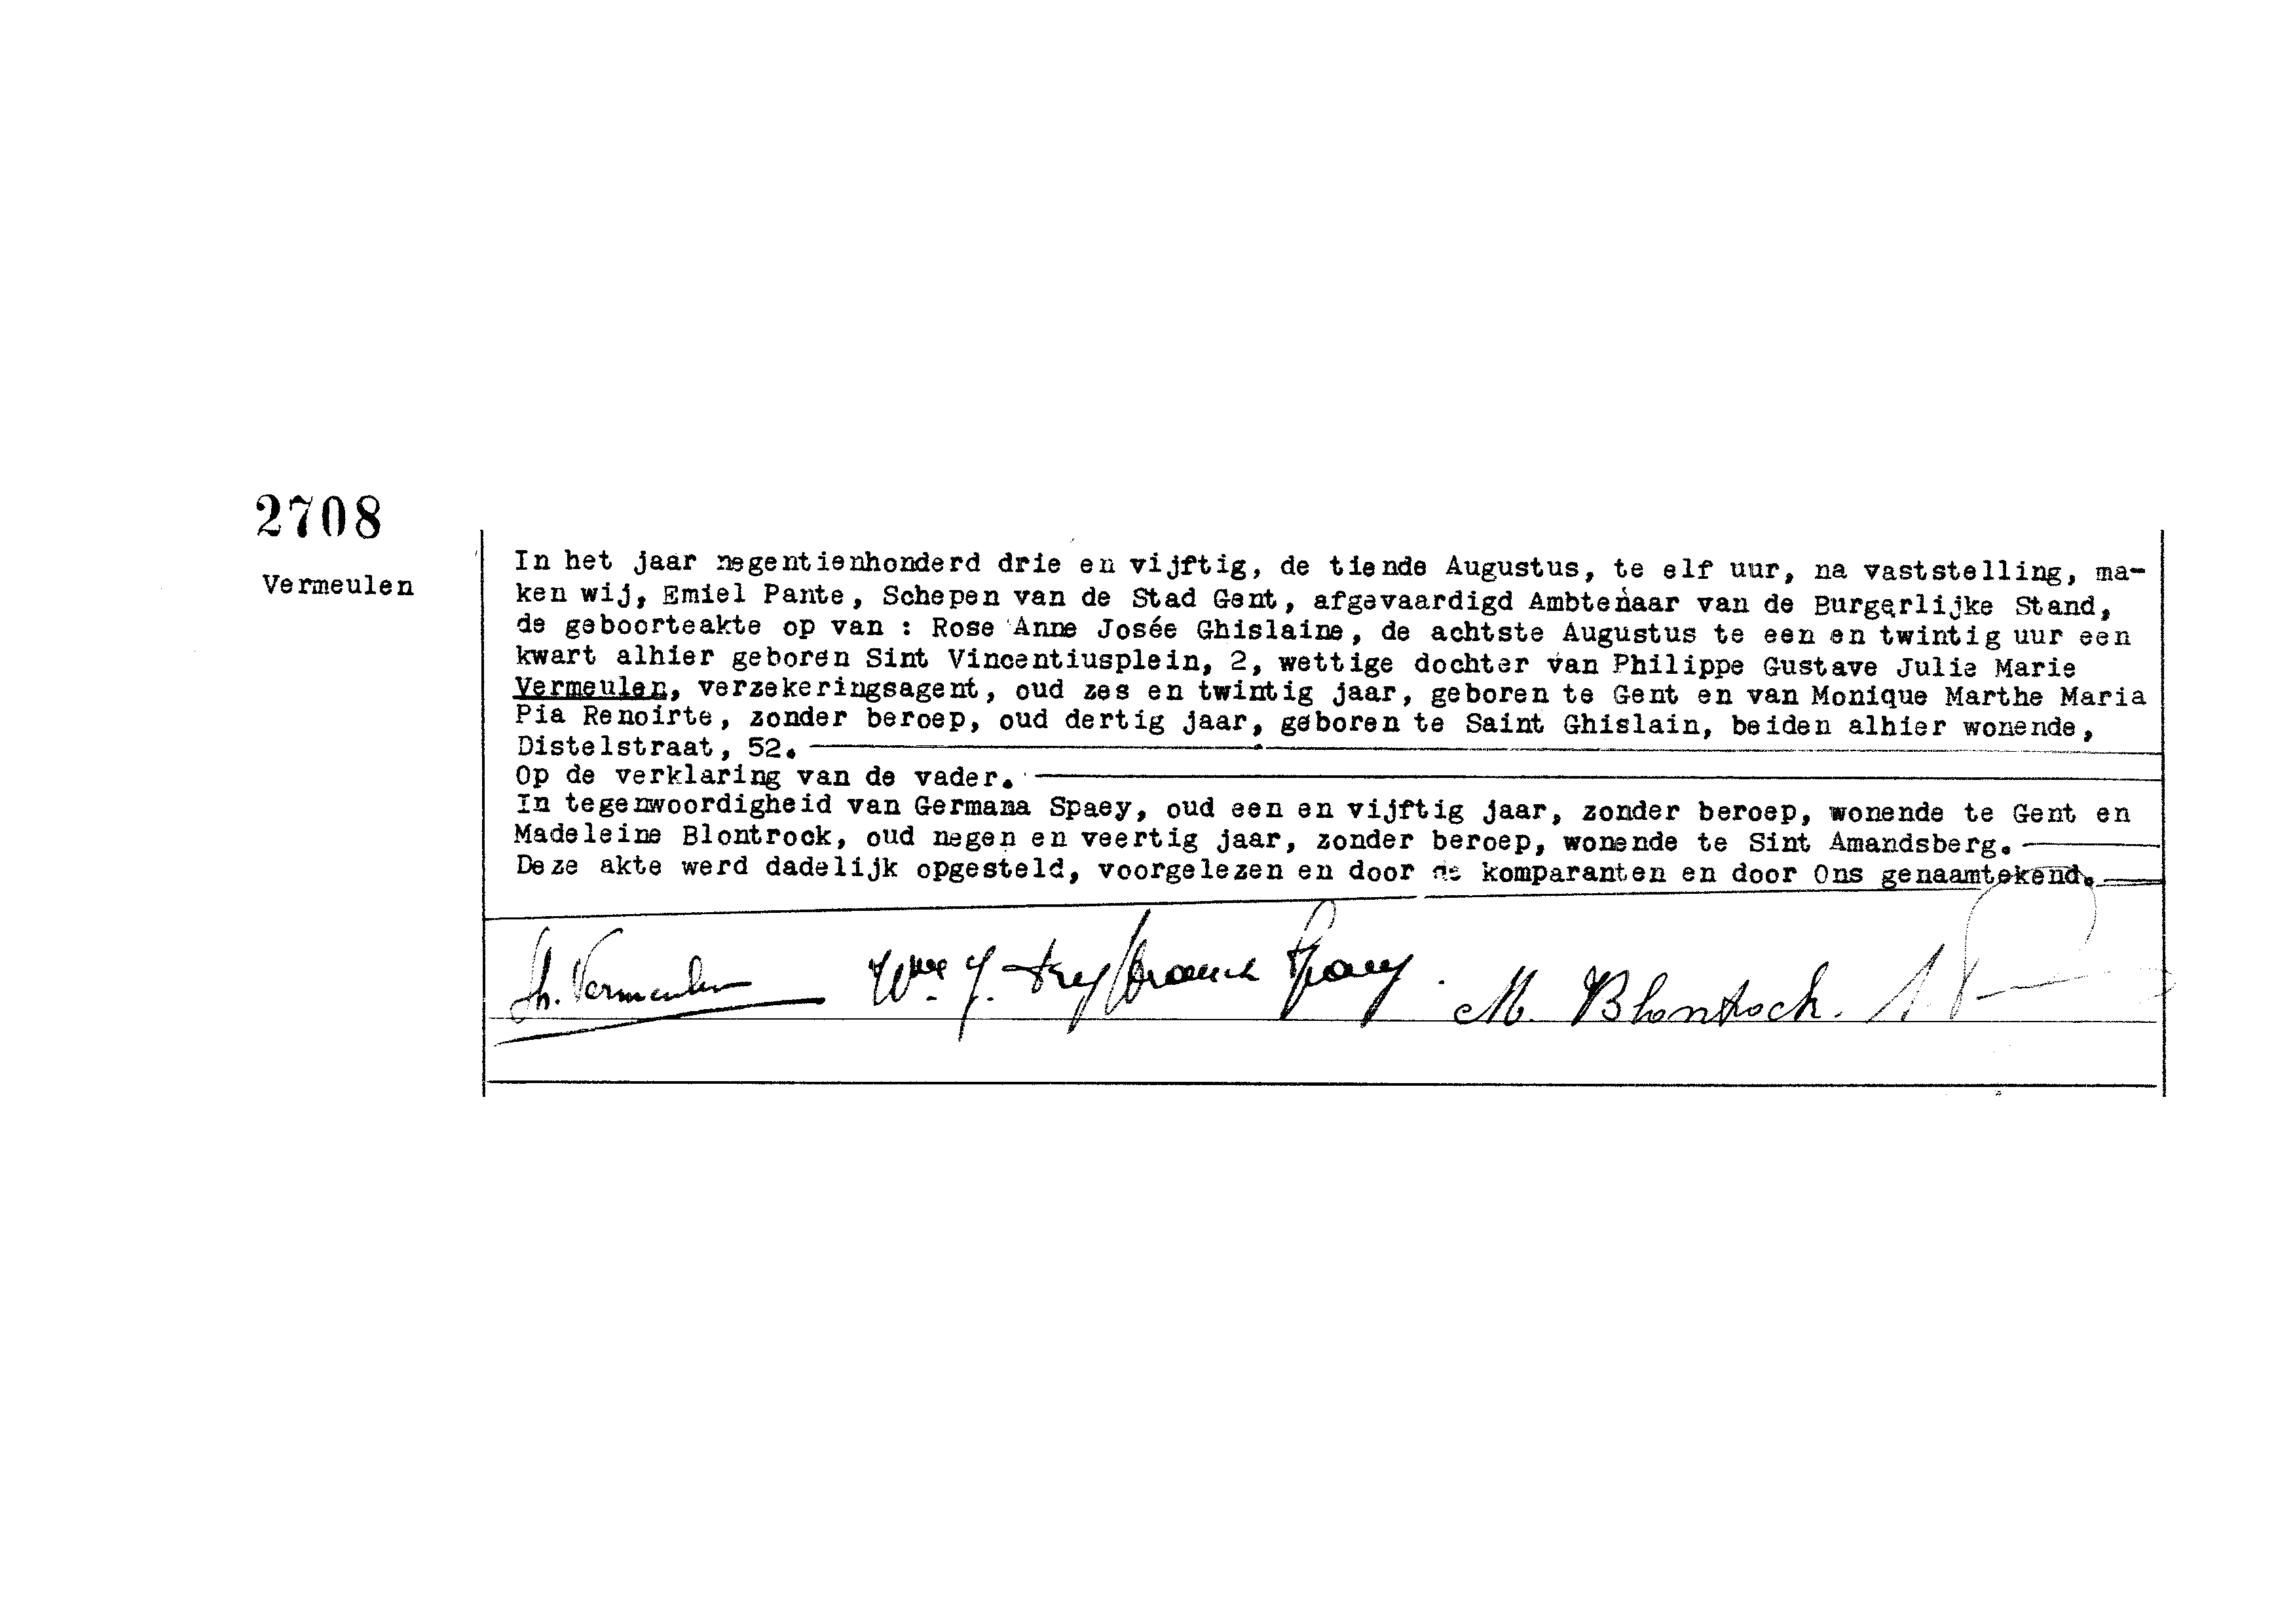 2708
Vermeulen
In het jaar negentienhonderd drie en vijftig, de tiende Augustus, te elf uur, na vaststelling, ma-
ken wij, Emiel Pante, Schepen van de Stad Gent, afgevaardigd Ambtenaar van de Burgerlijke Stand,
de geboorteakte op van : Rose Anne Josée Ghislaine, de achtste Augustus te een en twintig uur een
kwart alhier geboren Sint Vincentiusplein, 2, wettige dochter van Philippe Gustave Julie Marie
Vermeulen, verzekeringsagent, oud zes en twintig jaar, geboren te Gent en van Monique Marthe Maria
Pia Renoirte, zonder beroep, oud dertig jaar, geboren te Saint Ghislain, beiden alhier wonende,
Distelstraat, 52.
Op de verklaring van de vader.
In tegenwoordigheid van Germana Spaey, oud een en vijftig jaar, zonder beroep, wonende te Gent en
Madeleine Blontrock, oud negen en veertig jaar, zonder beroep, wonende te Sint Amandsberg.
Deze akte werd dadelijk opgesteld, voorgelezen en door de komparanten en door Ons genaamtekend.
Ph. Vermeulen Spaey. M. Blontrock.